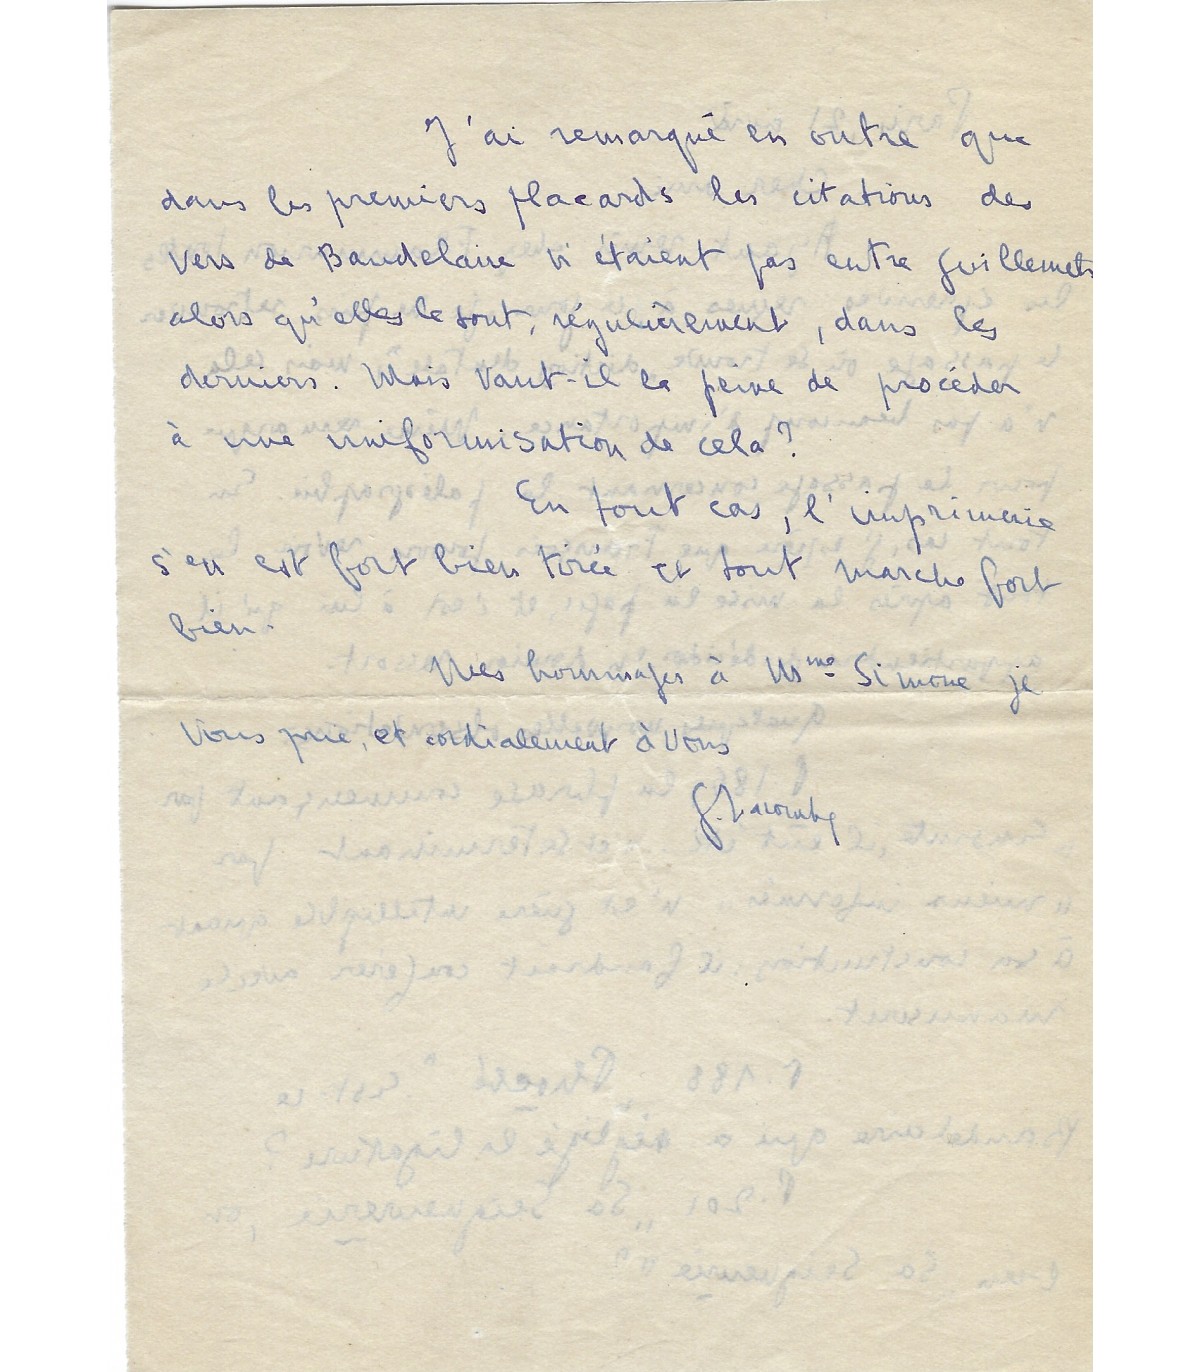 J'ai remarqué en outre que
dans les premiers placards les citations des
vers de Baudelaire n'étaient pas entre guillemets
alors qu'elles le sont, régulièrement, dans les
derniers. Mais vaut-il la peine de procéder
à une uniformisation de cela ?
En tout cas, l'imprimerie
s'en est fort bien tirée et tout marche fort
bien.
Mes hommages à Mme Simone je
vous prie, et cordialement à vous
G. Lacombe